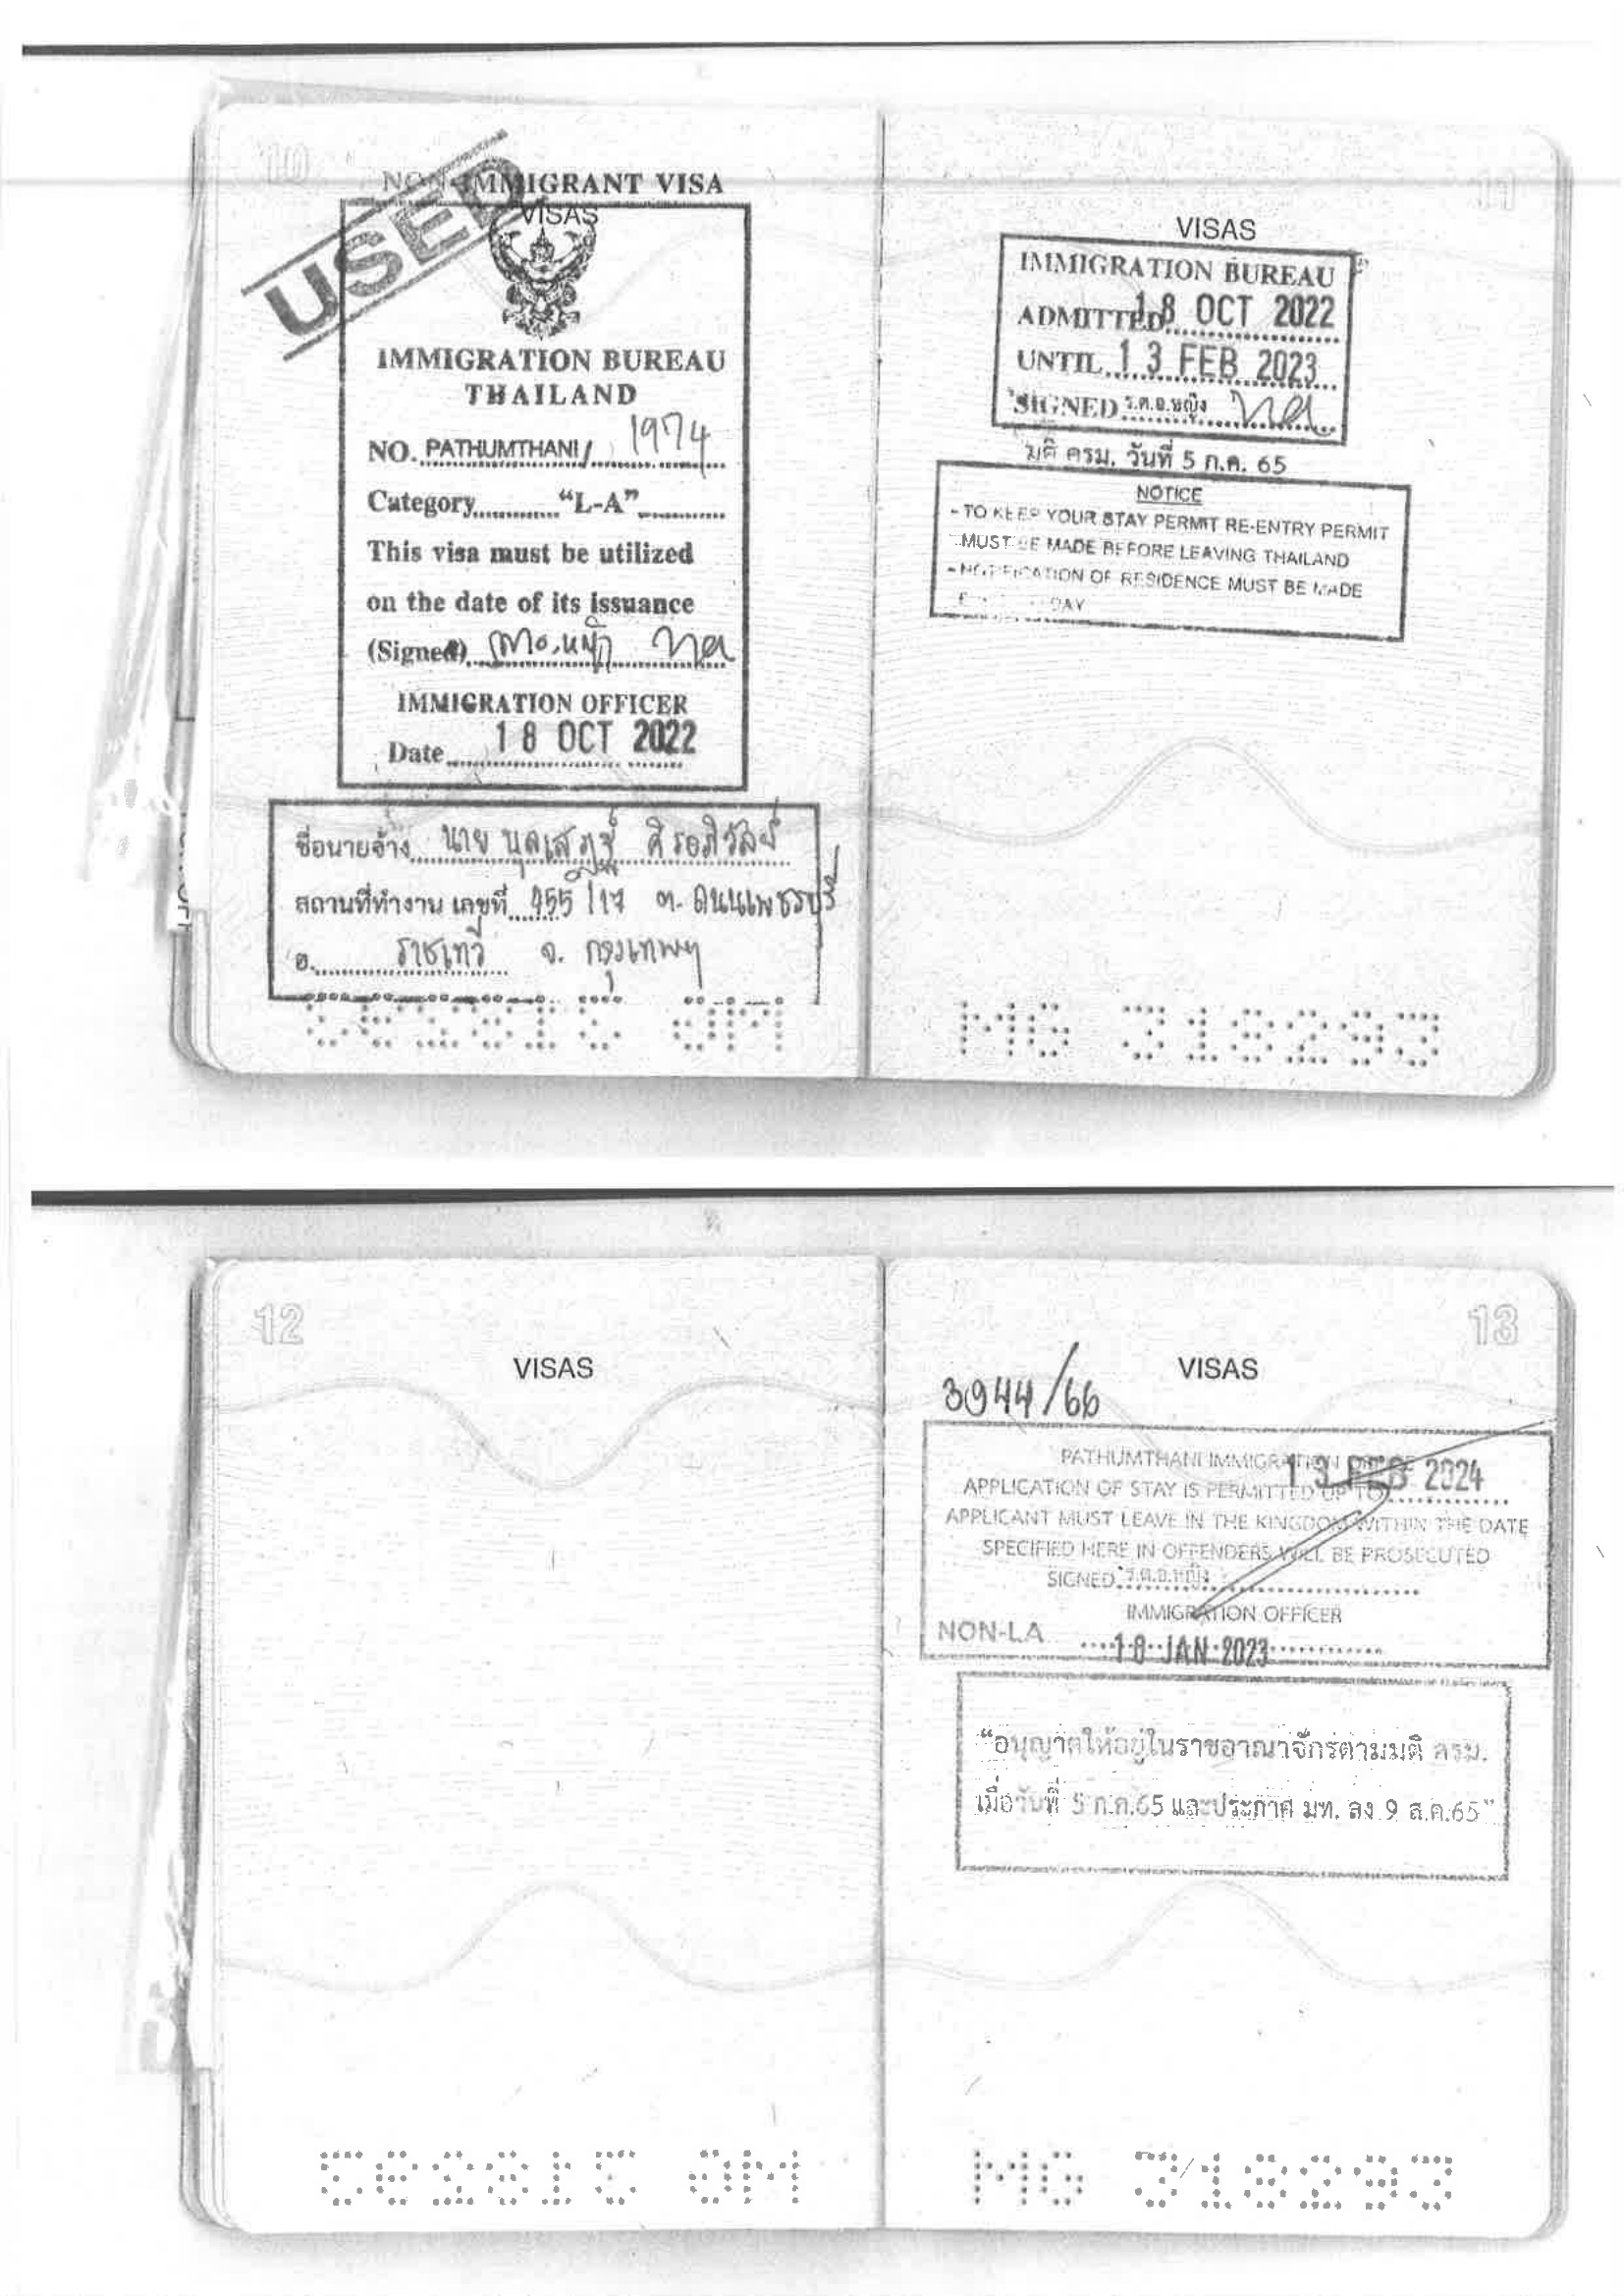 10
NON-IMMIGRANT VISA
VISAS
USED
IMMIGRATION BUREAU
THAILAND
NO. PATHUMTHANI/ 1974
Category "L-A"
This visa must be utilized
on the date of its issuance
(Signed)
IMMIGRATION OFFICER
Date 18 OCT 2022
ชื่อนายจ้าง นาย
สถานที่ทำงาน เลขที่ 455/17 ต. ถนนเพชรบุรี
อ. ราชเทวี จ. กรุงเทพฯ
MG 318293
11
VISAS
IMMIGRATION BUREAU
ADMITTED 18 OCT 2022
UNTIL 13 FEB 2023
SIGNED ร.ต.อ.หญิง
มติ ครม. วันที่ 5 ก.ค. 65
NOTICE
- TO KEEP YOUR STAY PERMIT RE-ENTRY PERMIT
MUST BE MADE BEFORE LEAVING THAILAND
- NOTIFICATION OF RESIDENCE MUST BE MADE
DAY
MG 318293
12
VISAS
MG 318293
13
VISAS
3944/66
PATHUMTHANI IMMIGRATION
13 FEB 2024
APPLICATION OF STAY IS PERMITTED UP TO
APPLICANT MUST LEAVE IN THE KINGDOM WITHIN THE DATE
SPECIFIED HERE IN OFFENDERS WILL BE PROSECUTED
SIGNED ร.ต.อ.หญิง
IMMIGRATION OFFICER
NON-LA 18 JAN 2023
"อนุญาตให้อยู่ในราชอาณาจักรตามมติ ครม.
เมื่อวันที่ 5 ก.ค.65 และประกาศ มท. ลง 9 ส.ค.65"
MG 318293